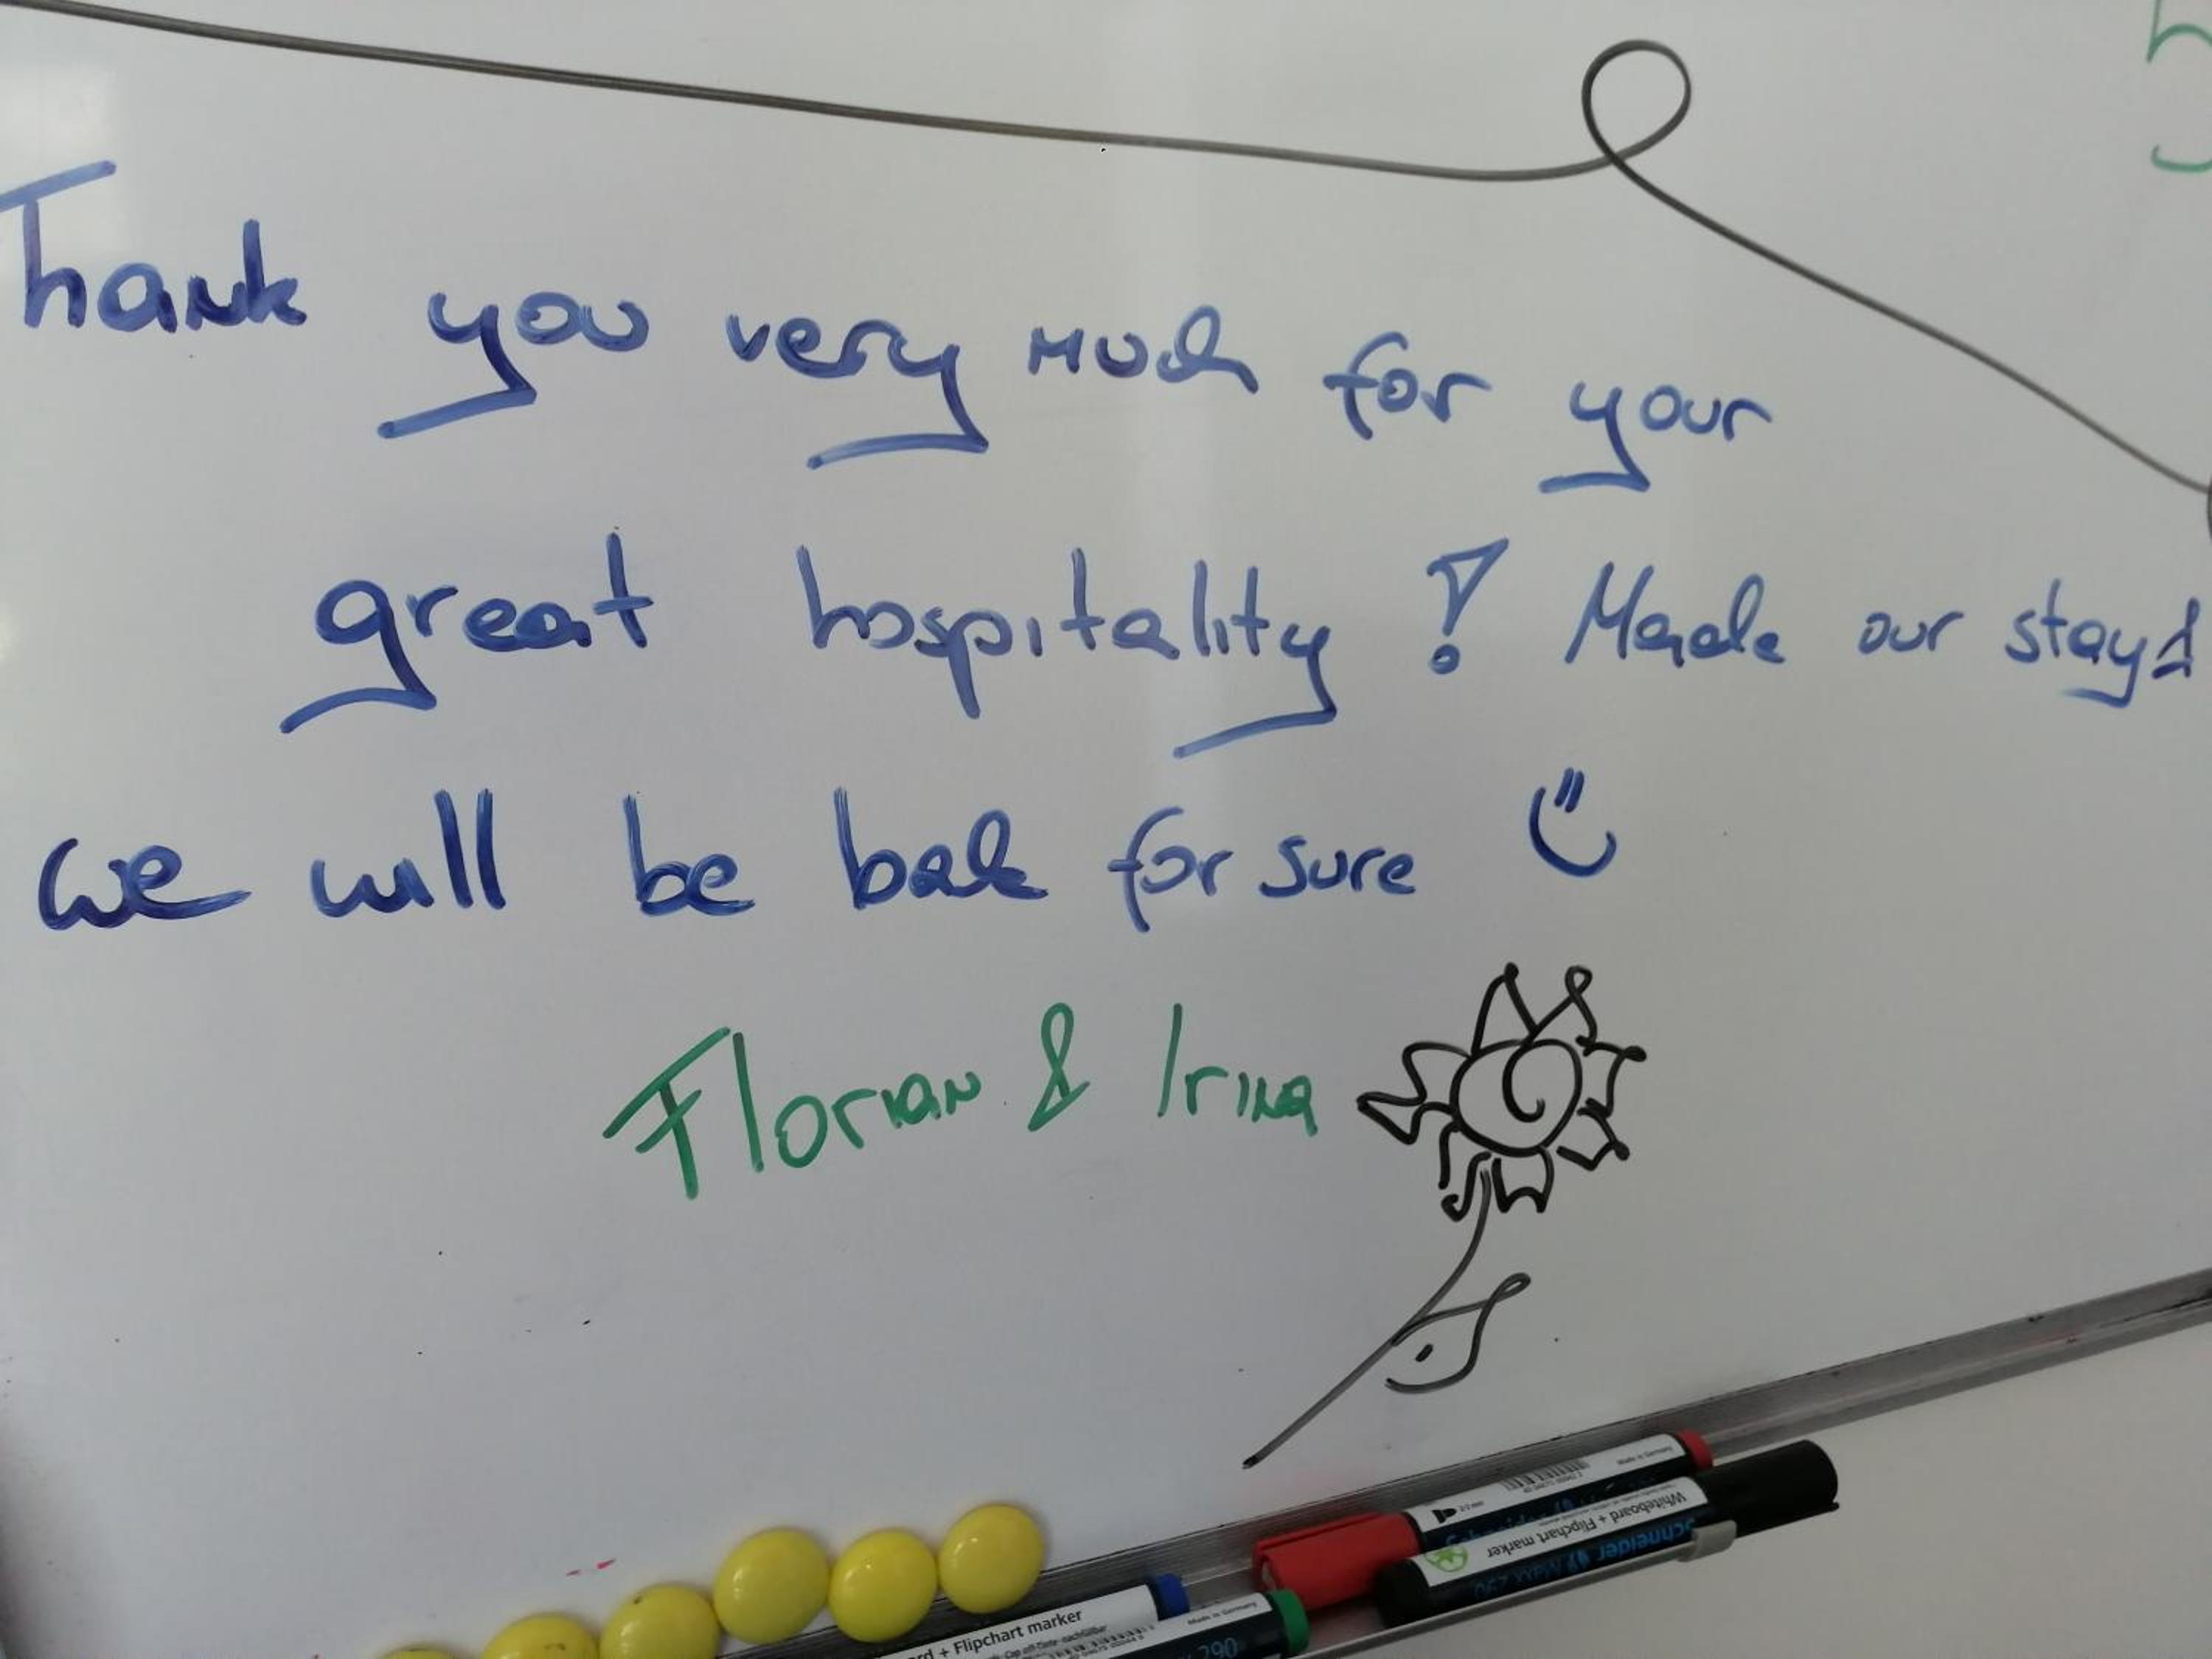 Thank you very much for your
great hospitality! Made our stay!
We will be back for sure
Florian & Irina
5
Made in Germany
2-3 mm
Schneider
Whiteboard + Flipchart marker
Schneider Maxx 290
+ Flipchart marker
Made in Germany
290